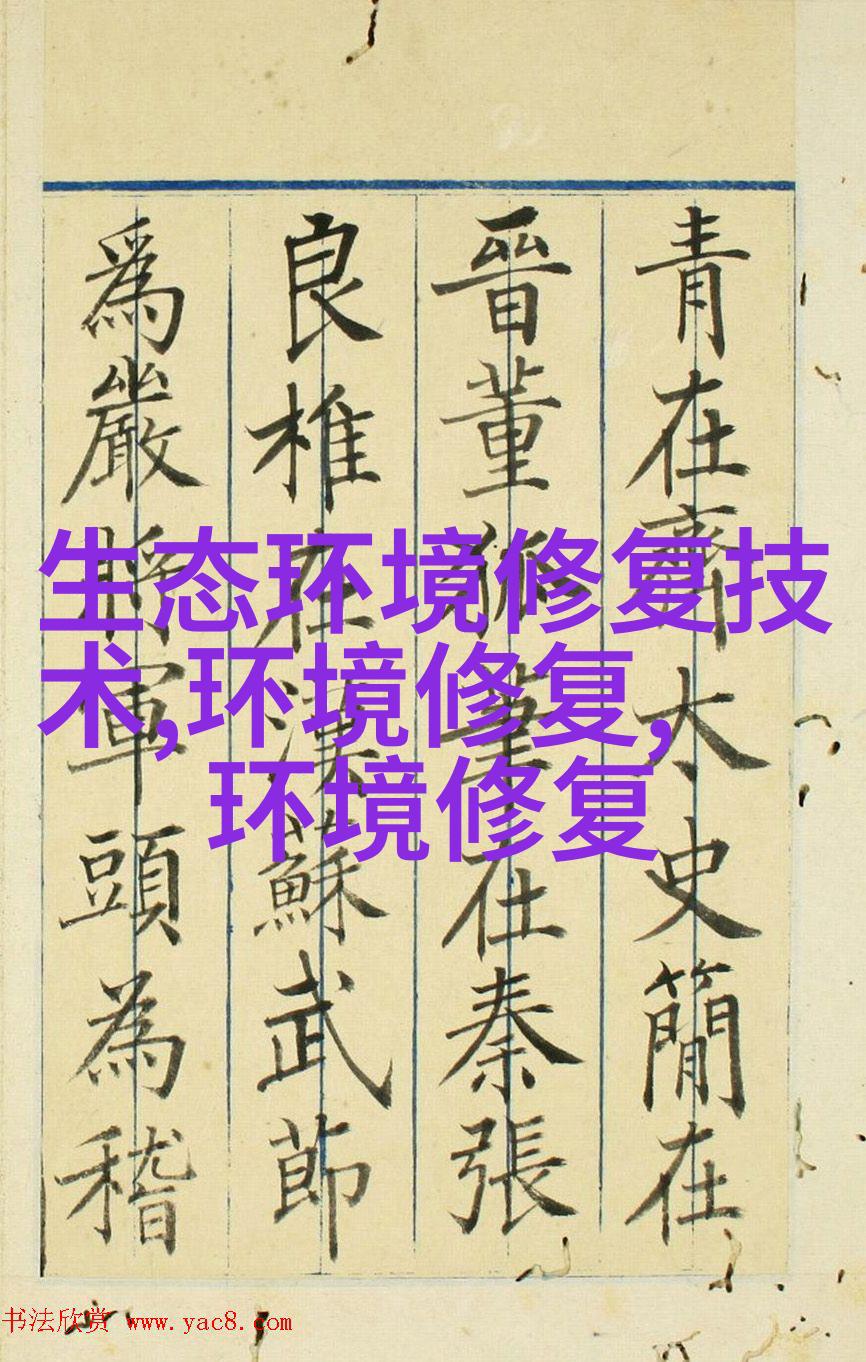 青在齊太史簡在
晉董狐筆在秦張
良椎在漢蘇武節
爲嚴將軍頭為稽
生态环境修复技
术,环境修复,
环境修复
书法欣赏 www.yac8.com